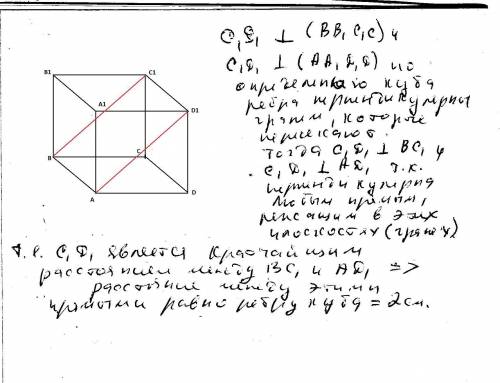 C₁D₁ ⊥ (BB₁C₁C) и
C₁D₁ ⊥ (AA₁D₁D) по
определению куба
ребра перпендикулярны
граням, которые
пересекают.
Тогда C₁D₁ ⊥ BC₁ и
C₁D₁ ⊥ AD₁ т.к.
перпендикулярна
любым прямым,
лежащим в этих
плоскостях (гранях)
B1
C1
A1
D1
B
C
A
D
т.е. C₁D₁ является кратчайшим
расстоянием между BC₁ и AD₁ =>
расстояние между этими
прямыми равно ребру куба = 2 см.